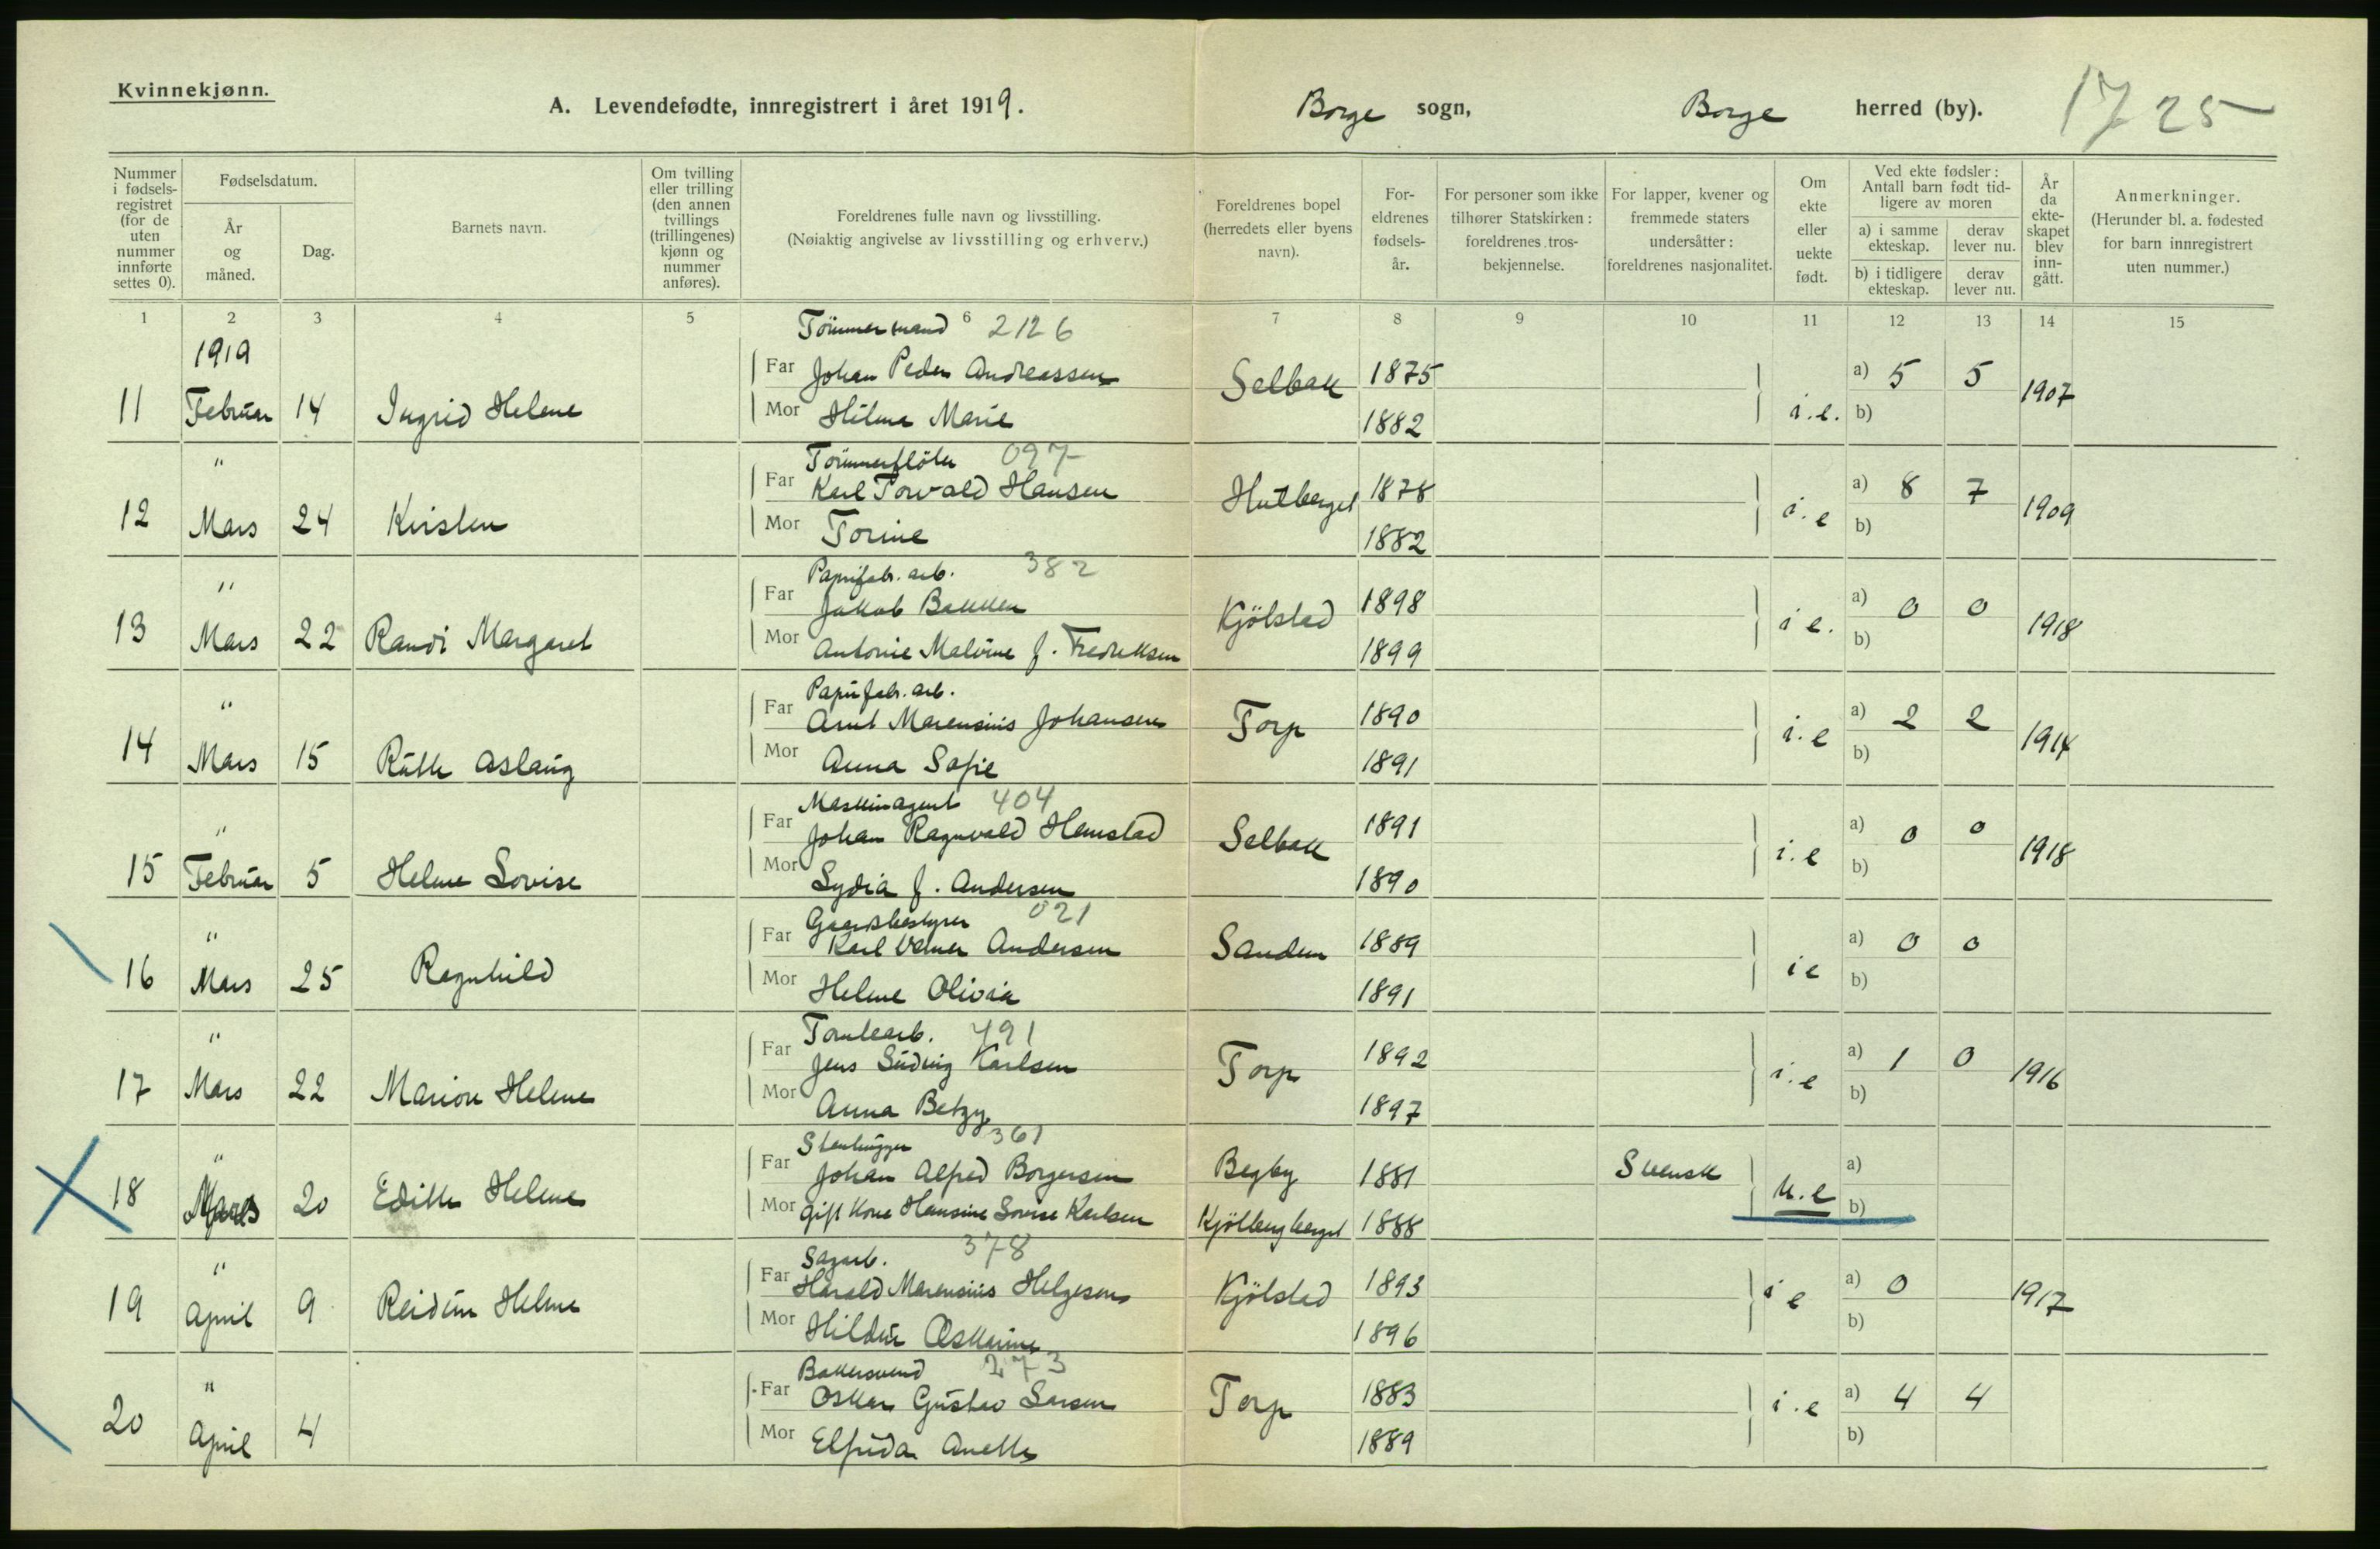 Kvinnekjønn.
A. Levendefødte, innregistrert i året 1919.
Borge sogn, Borge herred (by). 1725
Nummer i fødsels-registret (for de uten nummer innførte settes 0).
Fødselsdatum.
År og måned.
Dag.
Barnets navn.
Om tvilling eller trilling (den annen tvillings (trillingenes) kjønn og nummer anføres).
Foreldrenes fulle navn og livsstilling.
(Nøiaktig angivelse av livsstilling og erhverv.)
Foreldrenes bopel (herredets eller byens navn).
For-eldrenes fødsels-år.
For personer som ikke tilhører Statskirken: foreldrenes tros-bekjennelse.
For lapper, kvener og fremmede staters undersåtter: foreldrenes nasjonalitet.
Om ekte eller uekte født.
Ved ekte fødsler: Antall barn født tid-ligere av moren
a) i samme ekteskap.
derav lever nu.
b) i tidligere ekteskap.
derav lever nu.
År da ekte-skapet blev inn-gått.
Anmerkninger.
(Herunder bl. a. fødested for barn innregistrert uten nummer.)
1 2 3 4 5 6 7 8 9 10 11 12 13 14 15
1919 Tömmermand 2126
Far Johan Peder Andreassen Selbak 1875 a) 5 5 1907
11 Februar 14 Ingrid Helene Mor Hilma Marie 1882 i.e. b)
" Tömmerflöter 097
Far Karl Torvald Hansen Hutberget 1878 a) 8 7 1909
12 Mars 24 Kirsten Mor Torine 1882 i.e b)
" Papirfabr. arb. 382
Far Jakob Bakken Kjölstad 1898 a) 0 0 1918
13 Mars 22 Randi Margaret Mor Antonie Malvine f. Fredriksen 1899 i e. b)
" Papirfabr. arb.
Far Arnt Marensius Johansen Torp 1890 a) 2 2 1914
14 Mars 15 Ruth Aslaug Mor Anna Sofie 1891 i.e b)
" Maskinagent 404
Far Johan Ragnvald Hemstad Selbak 1891 a) 0 0 1918
15 Februar 5 Helene Lovise Mor Lydia f. Andersen 1890 i.e b)
" Gaardsbestyrer 021
Far Karl Verner Andersen Sanden 1889 a) 0 0
16 Mars 25 Ragnhild Mor Helene Olivia 1891 i e b)
" Tomtearb. 491
Far Jens Ludvig Karlsen Torp 1892 a) 1 0 1916
17 Mars 22 Marion Helene Mor Anna Betzy 1897 i.e b)
" Stenhugger 361
Far Johan Alfred Borgersen Begby 1881 Svensk a)
18 Mars 20 Edith Helene Mor gift Kone Hansine Lovise Karlsen Kjölbergberget 1888 u.e b)
" Sagarb. 378
Far Harald Marensius Helgesen Kjölstad 1893 a) 0 1917
19 April 9 Reidun Helene Mor Hildur Oskarine 1896 i e b)
" Bakersvend 273
Far Oskar Gustav Larsen Torp 1883 a) 4 4
20 April 4 Mor Elfrida Anette 1889 i.e b)